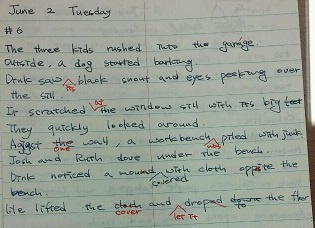 June 2 Tuesday
#6
The three kids rushed into the garage.
Outside, a dog started barking.
Dink saw its black snout and eyes peeking over
the sill
It scratched at the window sill with its big feet
They quickly looked around.
Against the one wall, a workbench was piled with junk
Josh and Ruth dove under the bench.
Dink noticed a mound covered with cloth oppsite the
bench.
He lifted the cloth cover and let it droped down to the